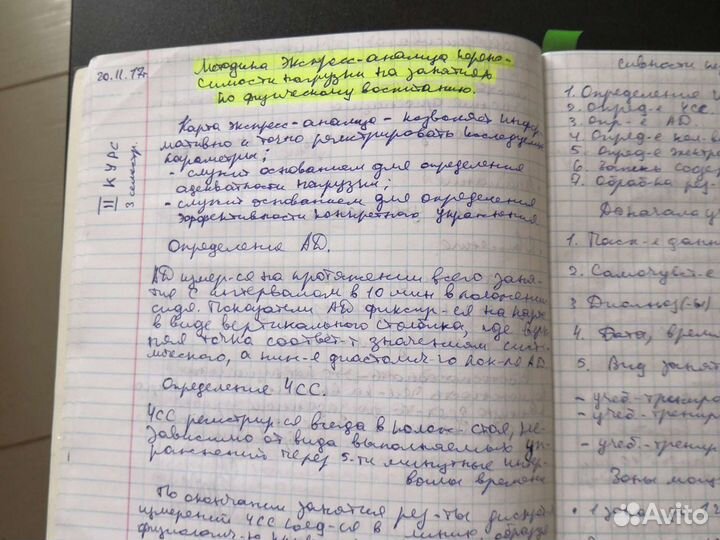 20.11.17г.
Методика экспресс-анализа перено-
симости нагрузки на занятиях
по физическому воспитанию.
II КУРС
3 семестр.
Карта экспресс-анализа - позволяет инфор
мативно и точно регистрировать последующие
параметры;
- служит основанием для определения
адекватности нагрузки;
- служит основанием для определения
эффективности конкретного упражнения
Определение АД.
АД измер-ся на протяжении всего заня-
тия с интервалом в 10 мин в положении
сидя. Показатели АД фиксир-ся на карте
в виде вертикального столбика, где верх
няя точка соответ-т значениям сист-
лического, а ниж-е диастолич-го пок-ля АД.
Определение ЧСС.
ЧСС регистрир-ся всегда в полож- стоя, не-
зависимо от вида выполняемых уп-
ражнений через 5-ти минутные интер-
валы времени
По окончании занятия рез-ты
измерений ЧСС соед-ся в линию
1. Определение
2. Опред-е ЧСС
3. Опр-е АД
4. Опред-е кол-в
5. Опред-е
6. Запись содер
7. Обраб-ка рез-
До начала у
1. Пасп-е данн
2. Самочувст-е
3 Диагноз(-ы)
4. Дата, времи
5. Вид занят
- учеб-трениро
- учеб-тренир
- учеб-тренир
Зоны мощ
• 1 зона
Avito